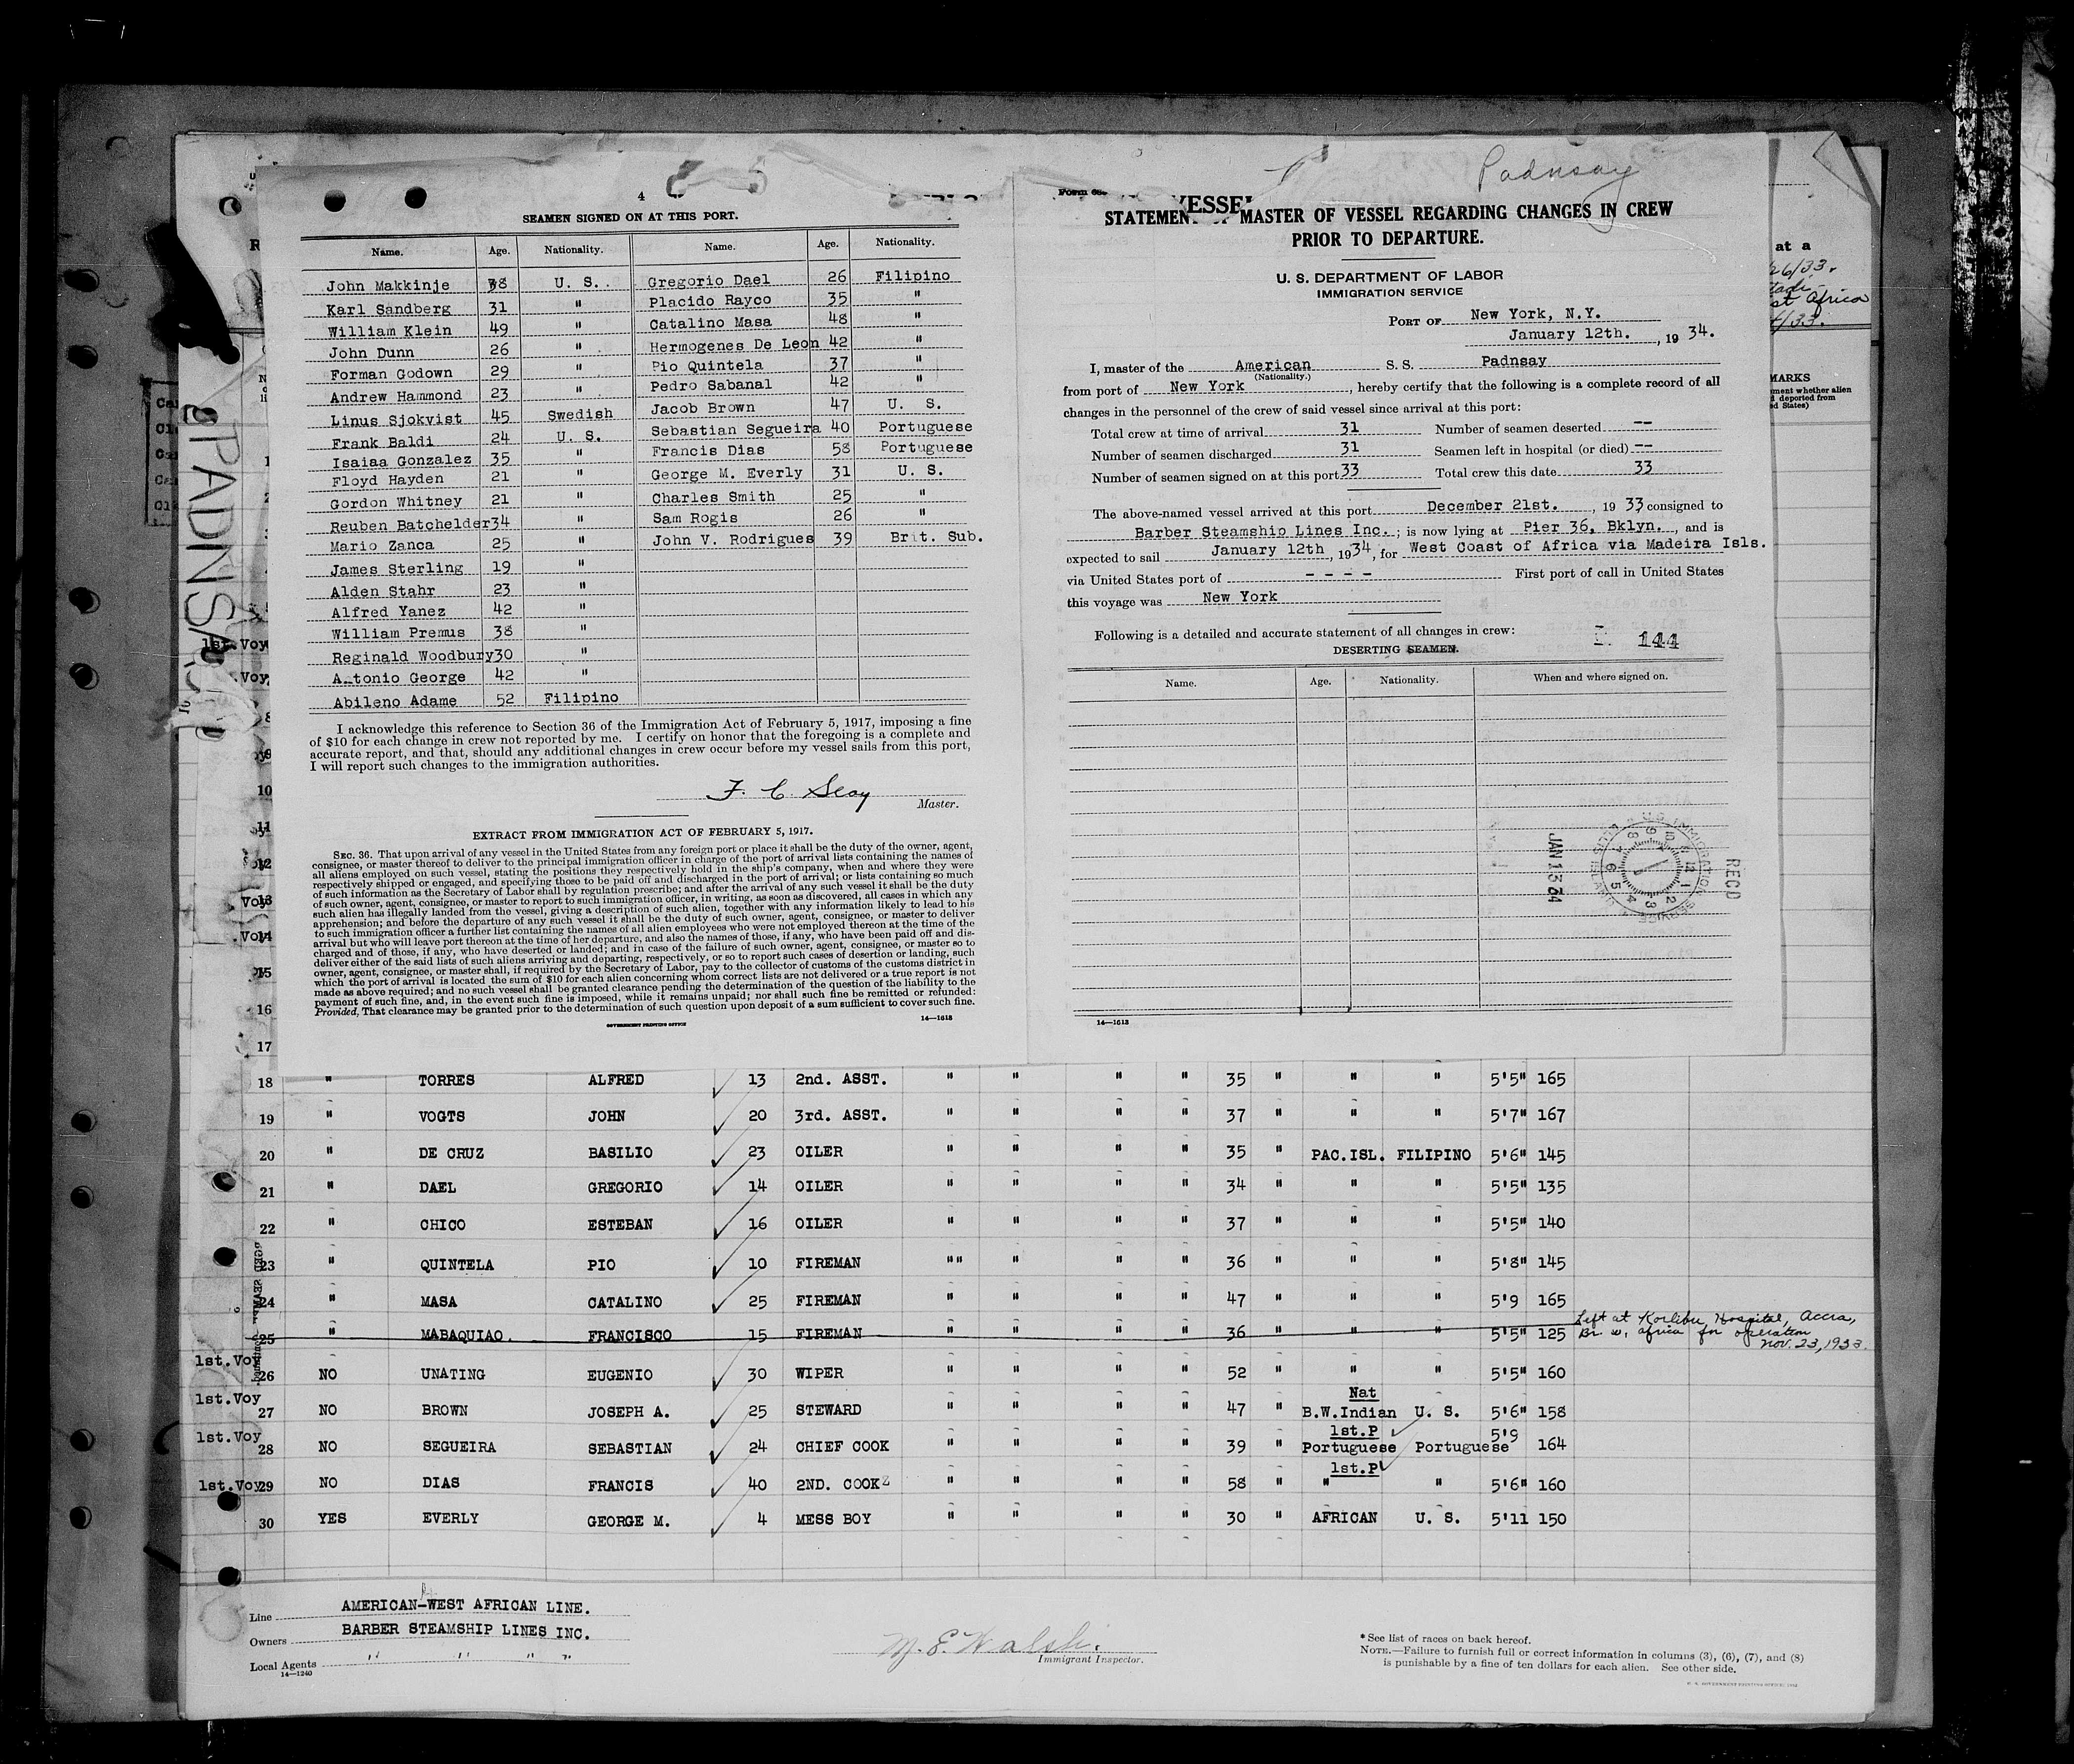 4
SEAMEN SIGNED ON AT THIS PORT.
Name. Age. Nationality. Name. Age. Nationality.
John Makkinje 38 U. S. Gregorio Dael 26 Filipino
Karl Sandberg 31 " Placido Rayco 35 "
William Klein 49 " Catalino Masa 48 "
John Dunn 26 " Hermogenes De Leon 42 "
Forman Godown 29 " Pio Quintela 37 "
Andrew Hammond 23 " Pedro Sabanal 42 "
Linus Sjokvist 45 Swedish Jacob Brown 47 U. S.
Frank Baldi 24 U. S. Sebastian Segueira 40 Portuguese
Isaiaa Gonzalez 35 " Francis Dias 58 Portuguese
Floyd Hayden 21 " George M. Everly 31 U. S.
Gordon Whitney 21 " Charles Smith 25 "
Reuben Batchelder 34 " Sam Rogis 26 "
Mario Zanca 25 " John V. Rodrigues 39 Brit. Sub.
James Sterling 19 "
Alden Stahr 23 "
Alfred Yanez 42 "
William Premus 38 "
Reginald Woodbury 30 "
Antonio George 42 "
Abileno Adame 52 Filipino
I acknowledge this reference to Section 36 of the Immigration Act of February 5, 1917, imposing a fine
of $10 for each change in crew not reported by me. I certify on honor that the foregoing is a complete and
accurate report, and that, should any additional changes in crew occur before my vessel sails from this port,
I will report such changes to the immigration authorities.
F. C. Seay
Master.
EXTRACT FROM IMMIGRATION ACT OF FEBRUARY 5, 1917.
SEC. 36. That upon arrival of any vessel in the United States from any foreign port or place it shall be the duty of the owner, agent,
consignee, or master thereof to deliver to the principal immigration officer in charge of the port of arrival lists containing the names of
all aliens employed on such vessel, stating the positions they respectively hold in the ship's company, when and where they were
respectively shipped or engaged, and specifying those to be paid off and discharged in the port of arrival; or lists containing so much
of such information as the Secretary of Labor shall by regulation prescribe; and after the arrival of any such vessel it shall be the duty
of such owner, agent, consignee, or master to report to such immigration officer, in writing, as soon as discovered, all cases in which any
such alien has illegally landed from the vessel, giving a description of such alien, together with any information likely to lead to his
apprehension; and before the departure of any such vessel it shall be the duty of such owner, agent, consignee, or master to deliver
to such immigration officer a further list containing the names of all alien employees who were not employed thereon at the time of the
arrival but who will leave port thereon at the time of her departure, and also the names of those, if any, who have been paid off and dis-
charged and of those, if any, who have deserted or landed; and in case of the failure of such owner, agent, consignee, or master so to
deliver either of the said lists of such aliens arriving and departing, respectively, or so to report such cases of desertion or landing, such
owner, agent, consignee, or master shall, if required by the Secretary of Labor, pay to the collector of customs of the customs district in
which the port of arrival is located the sum of $10 for each alien concerning whom correct lists are not delivered or a true report is not
made as above required; and no such vessel shall be granted clearance pending the determination of the question of the liability to the
payment of such fine, and, in the event such fine is imposed, while it remains unpaid; nor shall such fine be remitted or refunded:
Provided, That clearance may be granted prior to the determination of such question upon deposit of a sum sufficient to cover such fine.
GOVERNMENT PRINTING OFFICE 14—1613
Padnsay
STATEMENT OF MASTER OF VESSEL REGARDING CHANGES IN CREW
PRIOR TO DEPARTURE.
U. S. DEPARTMENT OF LABOR
IMMIGRATION SERVICE
PORT OF New York, N.Y.
January 12th. , 19 34.
I, master of the American S. S. Padnsay
(Nationality.)
from port of New York , hereby certify that the following is a complete record of all
changes in the personnel of the crew of said vessel since arrival at this port:
Total crew at time of arrival 31 Number of seamen deserted --
Number of seamen discharged 31 Seamen left in hospital (or died) --
Number of seamen signed on at this port 33 Total crew this date 33
The above-named vessel arrived at this port December 21st. , 19 33 consigned to
Barber Steamship Lines Inc. ; is now lying at Pier 36, Bklyn. , and is
expected to sail January 12th , 1934, for West Coast of Africa via Madeira Isls.
via United States port of - - - - First port of call in United States
this voyage was New York
Following is a detailed and accurate statement of all changes in crew: 144
DESERTING SEAMEN.
Name. Age. Nationality. When and where signed on.
REC'D
U.S. IMMIGRATION SERVICE
JAN 13 34
14—1613
at a
MARKS
PADNSAY
18 " TORRES ALFRED 13 2nd. ASST. " " " " 35 " " " 5'5" 165
19 " VOGTS JOHN 20 3rd. ASST. " " " " 37 " " " 5'7" 167
20 " DE CRUZ BASILIO 23 OILER " " " " 35 " PAC.ISL. FILIPINO 5'6" 145
21 " DAEL GREGORIO 14 OILER " " " " 34 " " " 5'5" 135
22 " CHICO ESTEBAN 16 OILER " " " " 37 " " " 5'5" 140
23 " QUINTELA PIO 10 FIREMAN "" " " " 36 " " " 5'8" 145
24 " MASA CATALINO 25 FIREMAN " " " " 47 " " " 5'9 165
25 " MABAQUIAO. FRANCISCO 15 FIREMAN " " " " 36 " " " 5'5" 125 Left at Korlebu Hospital, Accra,
Br. W. Africa for operation
Nov. 23, 1933.
1st.Voy 26 NO UNATING EUGENIO 30 WIPER " " " " 52 " " " 5'5" 160
1st.Voy 27 NO BROWN JOSEPH A. 25 STEWARD " " " " 47 " Nat B.W.Indian U. S. 5'6" 158
1st.Voy 28 NO SEGUEIRA SEBASTIAN 24 CHIEF COOK " " " " 39 " 1st.P Portuguese Portuguese 5'9 164
1st.Voy 29 NO DIAS FRANCIS 40 2ND. COOK " " " " 58 " 1st.P " " 5'6" 160
30 YES EVERLY GEORGE M. 4 MESS BOY " " " " 30 " AFRICAN U. S. 5'11 150
Line AMERICAN-WEST AFRICAN LINE.
Owners BARBER STEAMSHIP LINES INC.
Local Agents " " " "
14—1240
M. E. Walsh.
Immigrant Inspector.
* See list of races on back hereof.
NOTE.—Failure to furnish full or correct information in columns (3), (6), (7), and (8)
is punishable by a fine of ten dollars for each alien. See other side.